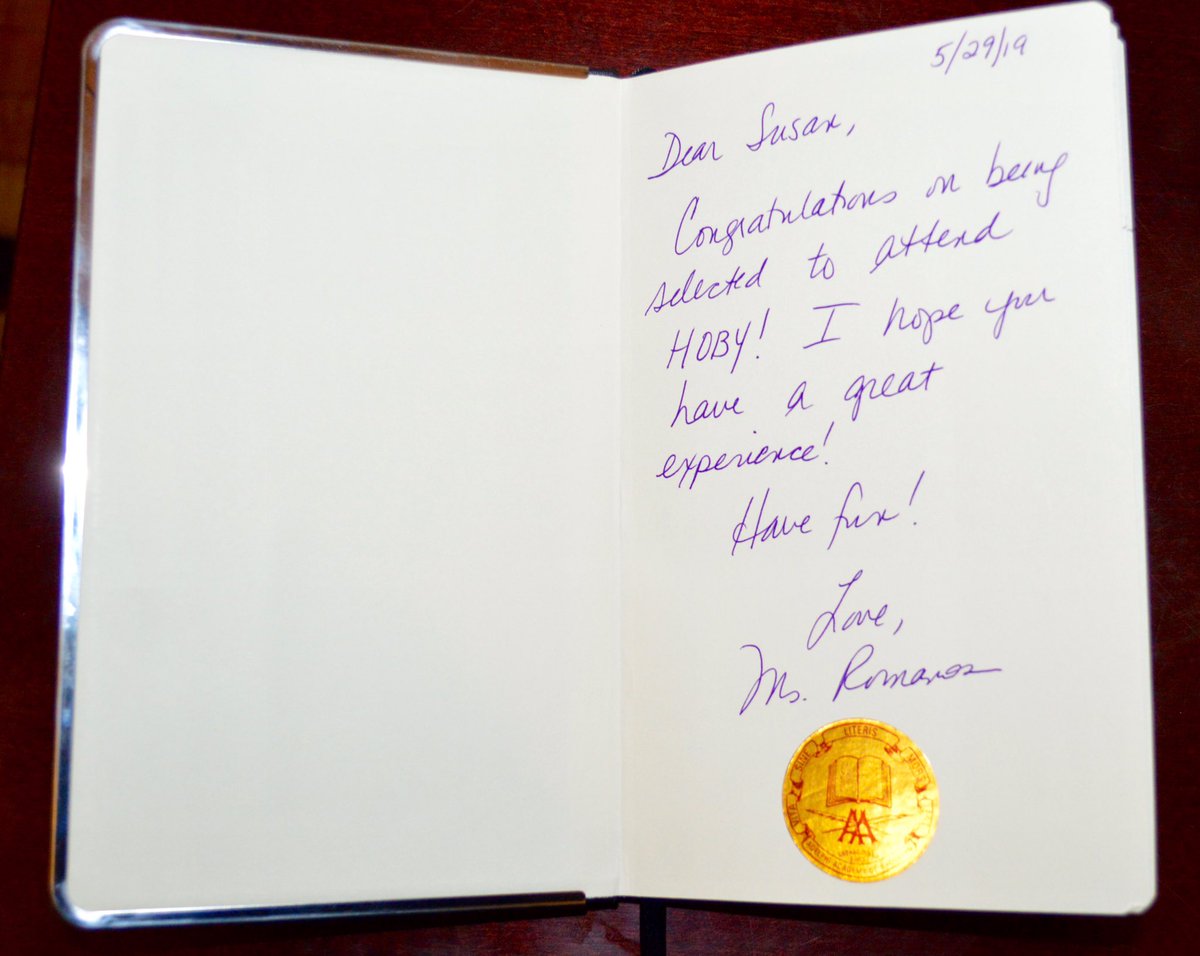 5/29/19
Dear Susan,
Congratulations on being
selected to attend
HOBY! I hope you
have a great
experience!
Have fun!
Love,
Ms. Romano
VITA SINE LITERIS MORS EST
AA
ADELPHI ACADEMY